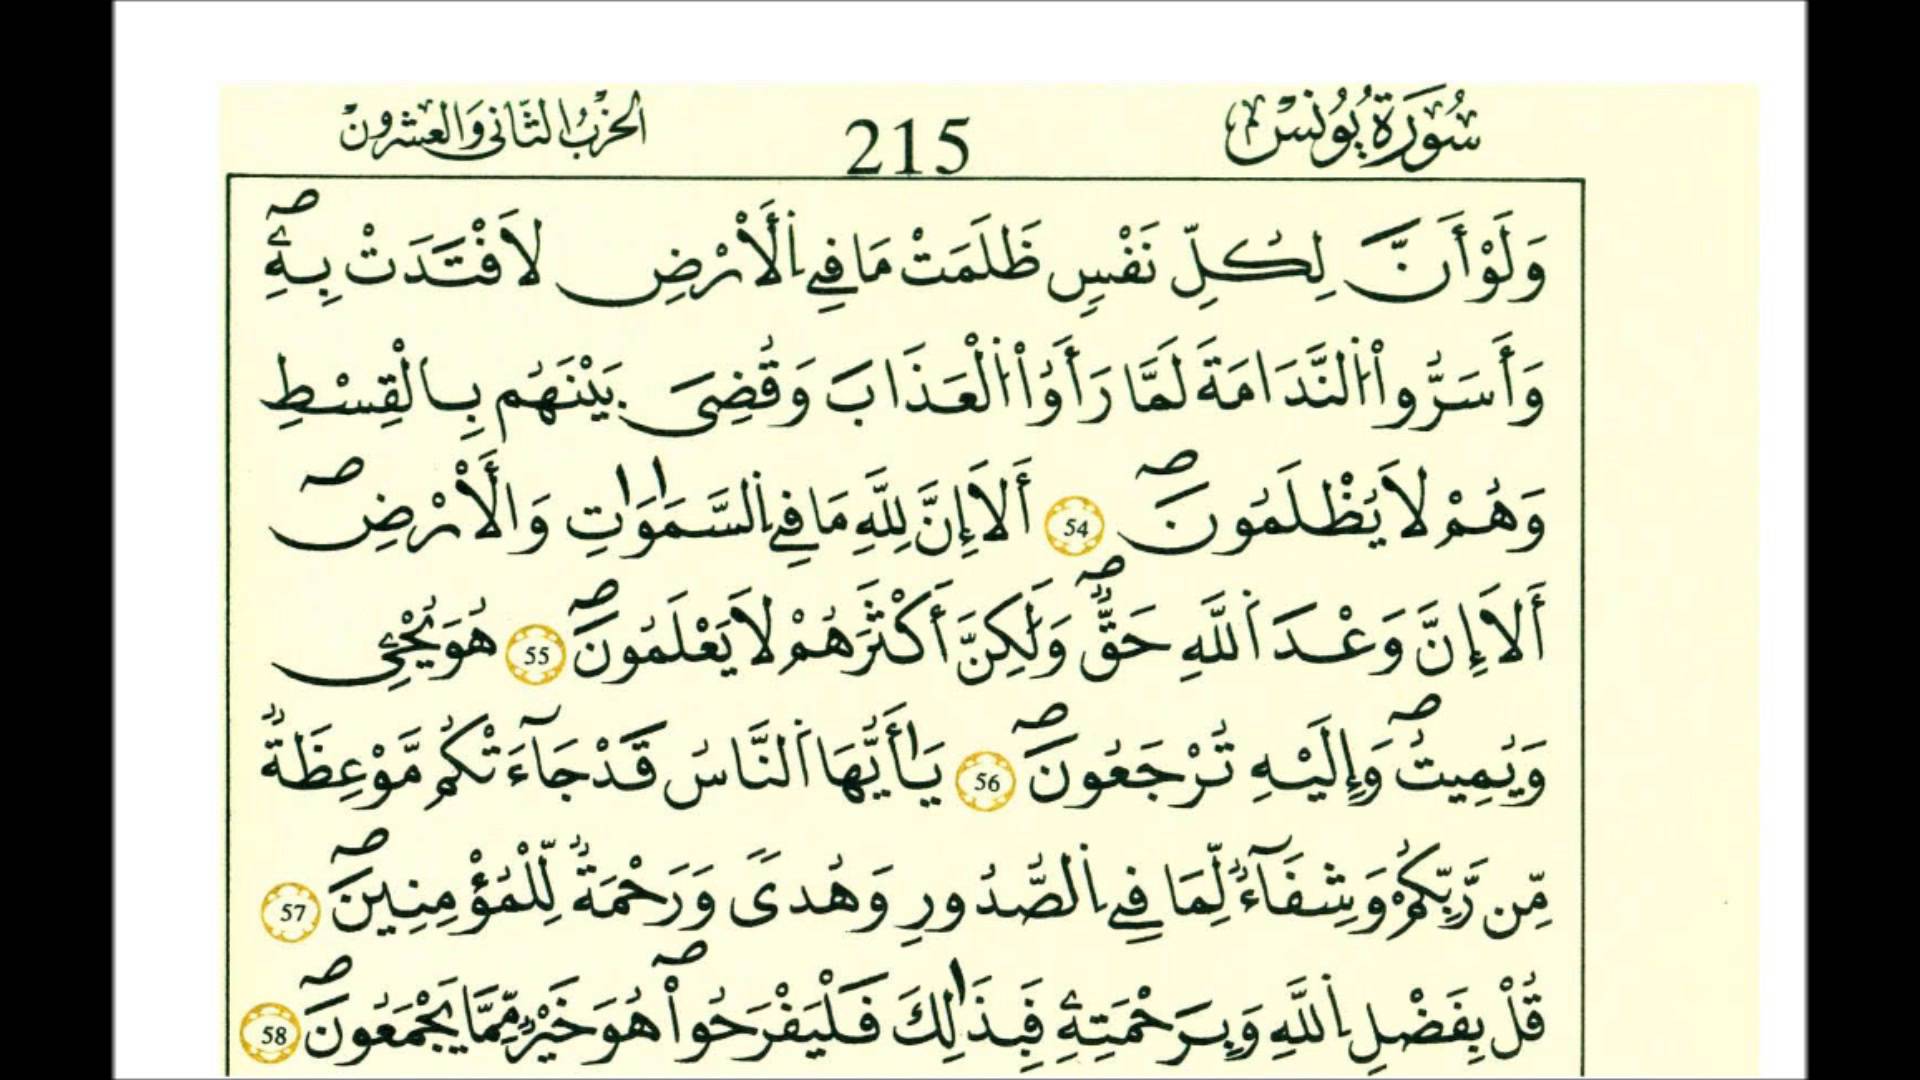 سُورَةُ يُونُسَ 215 الحِزْبُ الثَّانِي وَالعِشْرُونَ
وَلَوْ أَنَّ لِكُلِّ نَفْسٖ ظَلَمَتْ مَا فِے اِ۬لَارْضِ لَافْتَدَتْ بِهِۦۖ
وَأَسَرُّواْ اُ۬لنَّدَامَةَ لَمَّا رَأَوُاْ اُ۬لْعَذَابَ وَقُضِيَ بَيْنَهُم بِالْقِسْطِ
وَهُمْ لَا يُظْلَمُونَۖ 54 أَلَا إِنَّ لِلهِ مَا فِے اِ۬لسَّمَٰوَٰتِ وَالْأَرْضِۖ
أَلَا إِنَّ وَعْدَ اَ۬للَّهِ حَقّٞۖ وَلَٰكِنَّ أَكْثَرَهُمْ لَا يَعْلَمُونَۖ 55 هُوَ يُحْيِۦ
وَيُمِيتُۖ وَإِلَيْهِ تُرْجَعُونَۖ 56 يَٰأَيُّهَا اَ۬لنَّاسُ قَدْ جَآءَتْكُم مَّوْعِظَةٞ
مِّن رَّبِّكُمْ وَشِفَآءٞ لِّمَا فِے اِ۬لصُّدُورِ وَهُدىٗ وَرَحْمَةٞ لِّلْمُؤْمِنِينَۖ 57
قُلْ بِفَضْلِ اِ۬للَّهِ وَبِرَحْمَتِهِۦ فَبِذَٰلِكَ فَلْيَفْرَحُواْۖ هُوَ خَيْرٞ مِّمَّا يَجْمَعُونَۖ 58